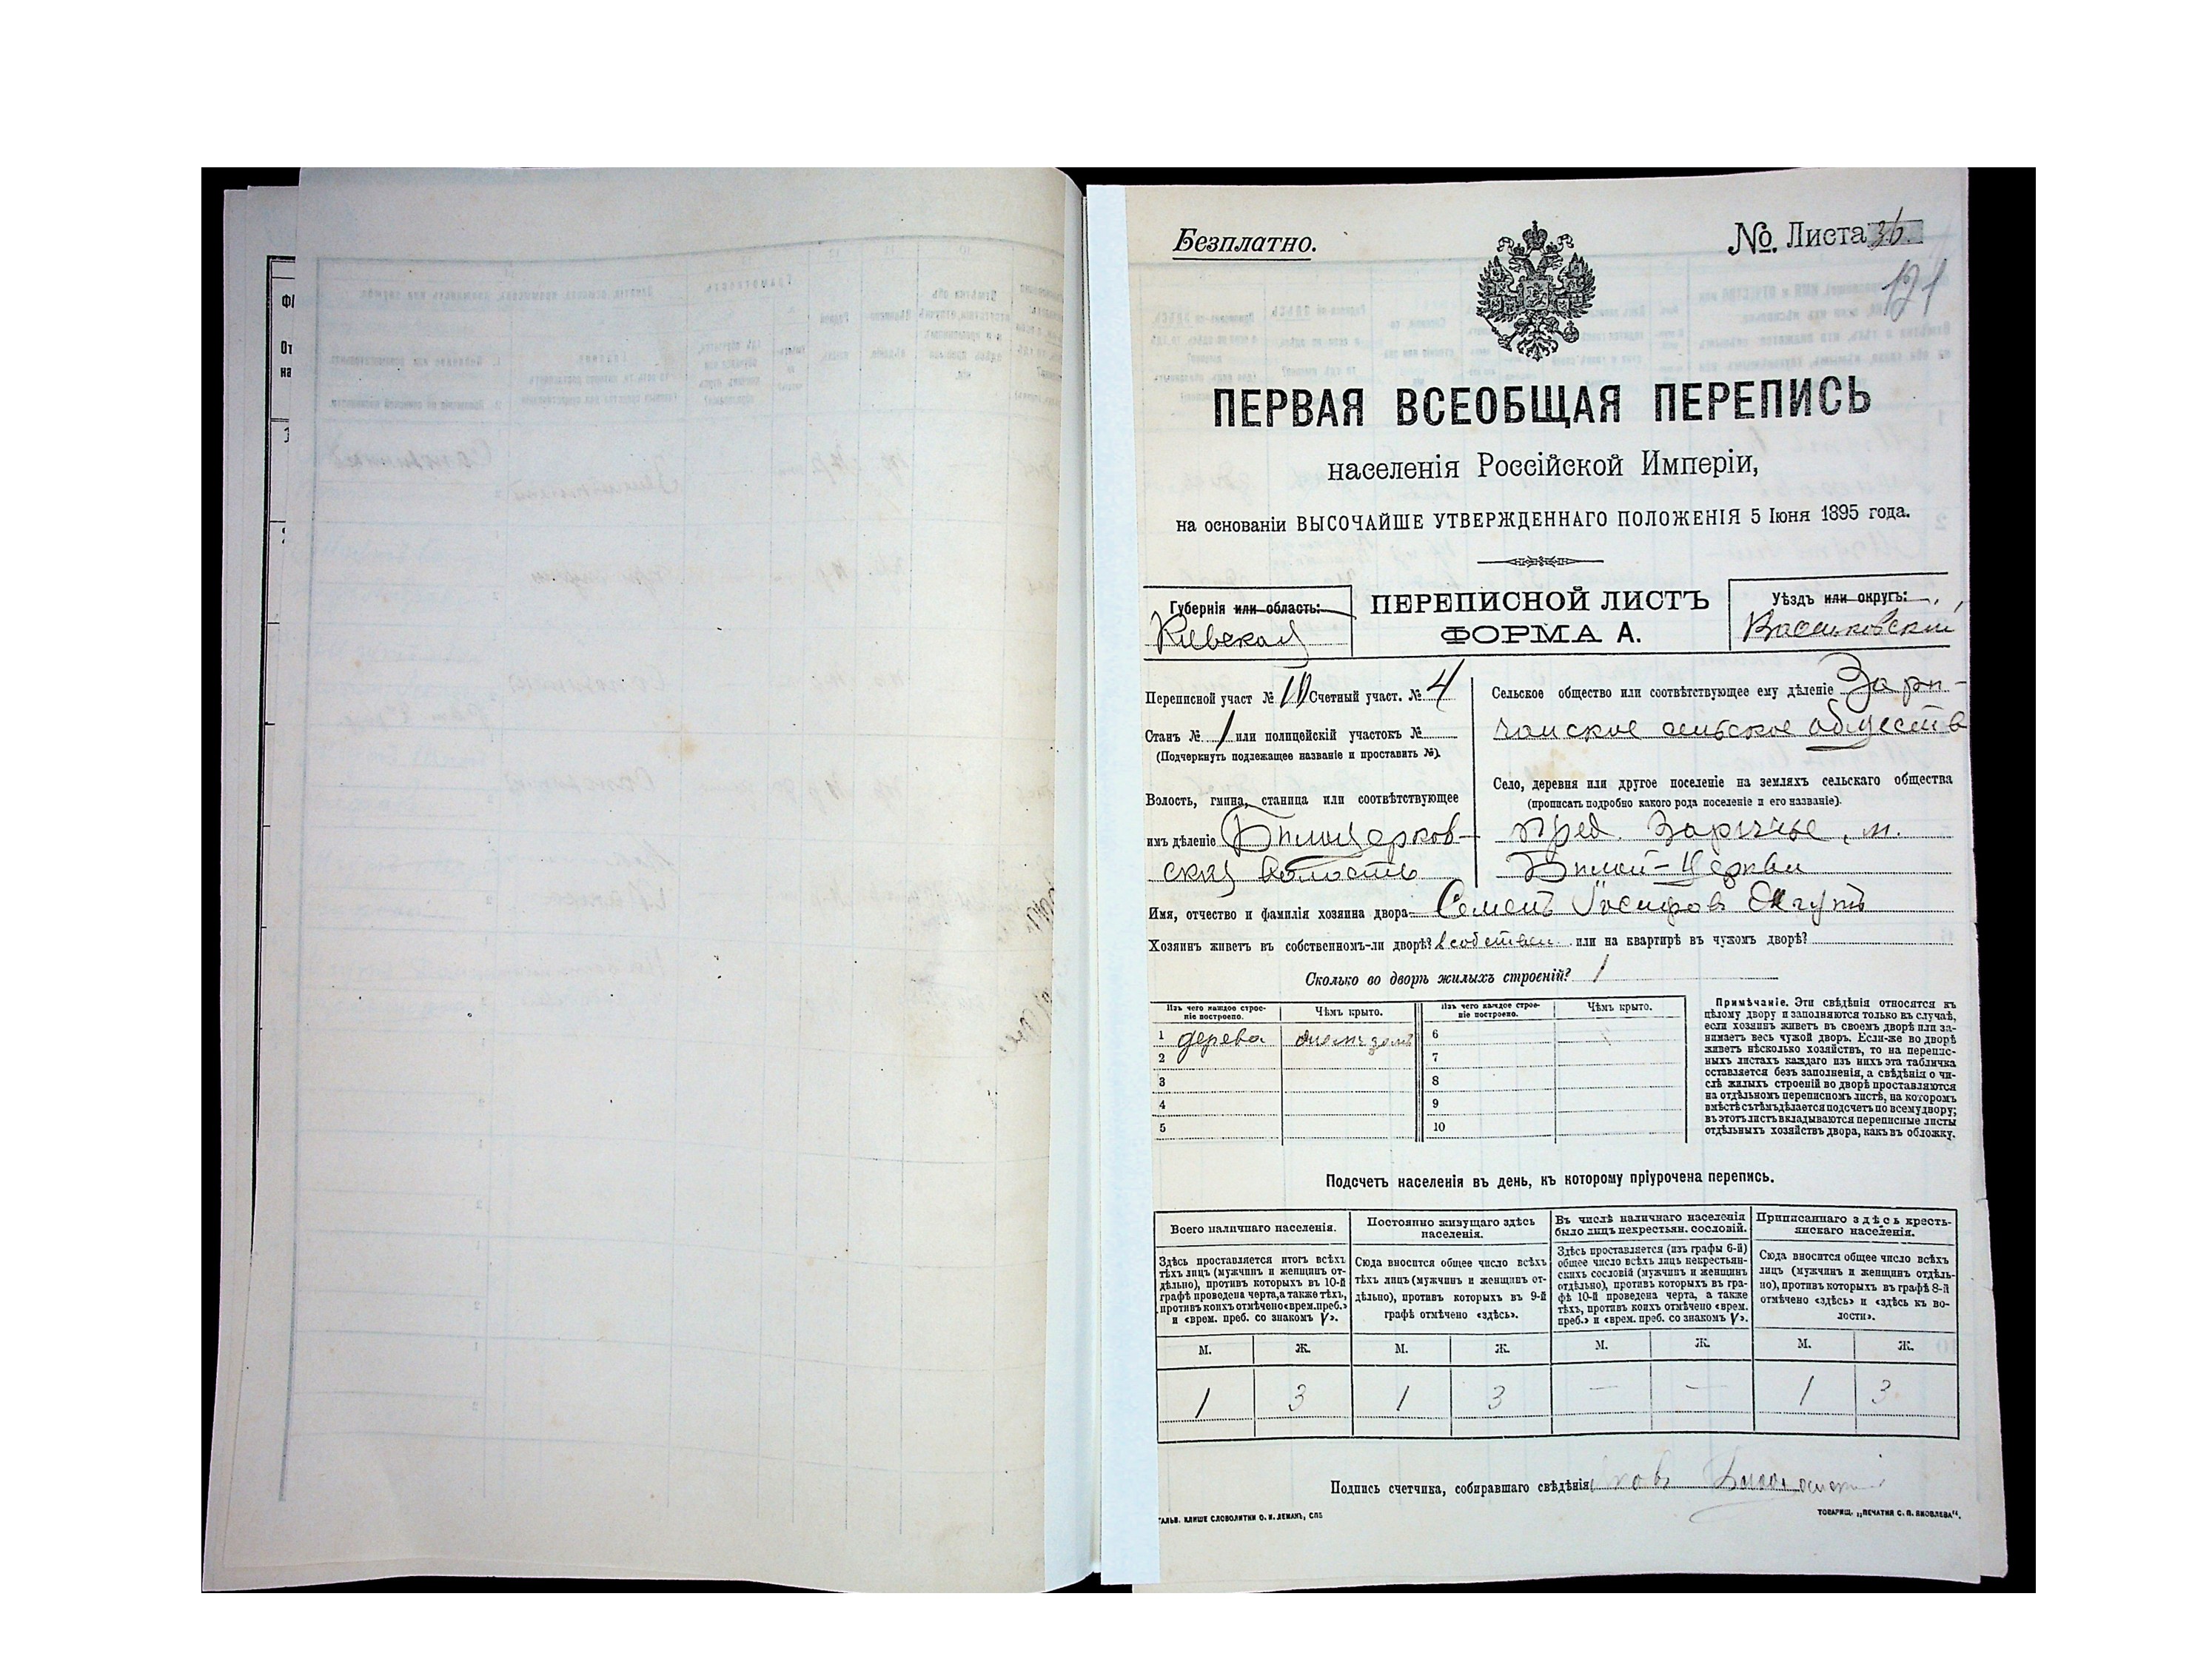 Безплатно.
№ Листа 36.
121
ПЕРВАЯ ВСЕОБЩАЯ ПЕРЕПИСЬ
населенія Россійской Имперіи,
на основаніи ВЫСОЧАЙШЕ УТВЕРЖДЕННАГО ПОЛОЖЕНІЯ 5 Іюня 1895 года.
Губернія или область:
Кіевская
ПЕРЕПИСНОЙ ЛИСТЪ
ФОРМА А.
Уѣздъ или округъ:
Васильковскій
Переписной участ № 10 Счетный участ. № 4
Станъ № 1 или полицейскій участокъ №
(Подчеркнуть подлежащее названіе и проставить №).
Волость, гмина, станица или соотвѣтствующее
имъ дѣленіе Бѣлоцерков-
ская волость
Сельское общество или соотвѣтствующее ему дѣленіе Зарѣ-
чанское сельское обществ
Село, деревня или другое поселеніе на земляхъ сельскаго общества
(прописать подробно какого рода поселеніе и его названіе).
пред. Зарѣчье, м.
Бѣлой-Церкви
Имя, отчество и фамилія хозяина двора Семенъ Іосифовъ
Хозяинъ живетъ въ собственномъ-ли дворѣ? в собствен. или на квартирѣ въ чужомъ дворѣ?
Сколько во дворѣ жилыхъ строеній? 1
Изъ чего каждое строе-
ніе построено.
Чѣмъ крыто.
Изъ чего каждое строе-
ніе построено.
Чѣмъ крыто.
1 дерева
2
3
4
5
6
7
8
9
10
Примѣчаніе. Эти свѣдѣнія относятся къ
цѣлому двору и заполняются только въ случаѣ,
если хозяинъ живетъ въ своемъ дворѣ или за-
нимаетъ весь чужой дворъ. Если-же во дворѣ
живетъ нѣсколько хозяйствъ, то на перепис-
ныхъ листахъ каждаго изъ нихъ эта табличка
оставляется безъ заполненія, а свѣдѣнія о чи-
слѣ жилыхъ строеній во дворѣ проставляются
на отдѣльномъ переписномъ листѣ, на которомъ
вмѣстѣ съ тѣмъ дѣлается подсчетъ по всему двору;
въ этотъ листъ вкладываются переписные листы
отдѣльныхъ хозяйствъ двора, какъ въ обложку.
Подсчетъ населенія въ день, къ которому пріурочена перепись.
Всего наличнаго населенія.
Здѣсь проставляется итогъ всѣхъ
тѣхъ лицъ (мужчинъ и женщинъ от-
дѣльно), противъ которыхъ въ 10-й
графѣ проведена черта, а также тѣхъ,
противъ коихъ отмѣчено «врем. преб.»
и «врем. преб. со знакомъ V».
Постоянно живущаго здѣсь
населенія.
Сюда вносится общее число всѣхъ
тѣхъ лицъ (мужчинъ и женщинъ от-
дѣльно), противъ которыхъ въ 9-й
графѣ отмѣчено «здѣсь».
Въ числѣ наличнаго населенія
было лицъ некрестьян. сословій.
Здѣсь проставляется (изъ графы 6-й)
общее число всѣхъ лицъ некрестьян-
скихъ сословій (мужчинъ и женщинъ
отдѣльно), противъ которыхъ въ гра-
фѣ 10-й проведена черта, а также
тѣхъ, противъ коихъ отмѣчено «врем.
преб.» и «врем. преб. со знакомъ V».
Приписаннаго здѣсь кресть-
янскаго населенія.
Сюда вносится общее число всѣхъ
лицъ (мужчинъ и женщинъ отдѣль-
но), противъ которыхъ въ графѣ 8-й
отмѣчено «здѣсь» и «здѣсь къ во-
лости».
М. Ж. М. Ж. М. Ж. М. Ж.
1 3 1 3 — — 1 3
Подпись счетчика, собиравшаго свѣдѣнія
ГАЛЬВ. КЛИШЕ СЛОВОЛИТНИ О. И. ЛЕМАНЪ, СПБ
ТОВАРИЩ. „ПЕЧАТНЯ С. П. ЯКОВЛЕВА“.